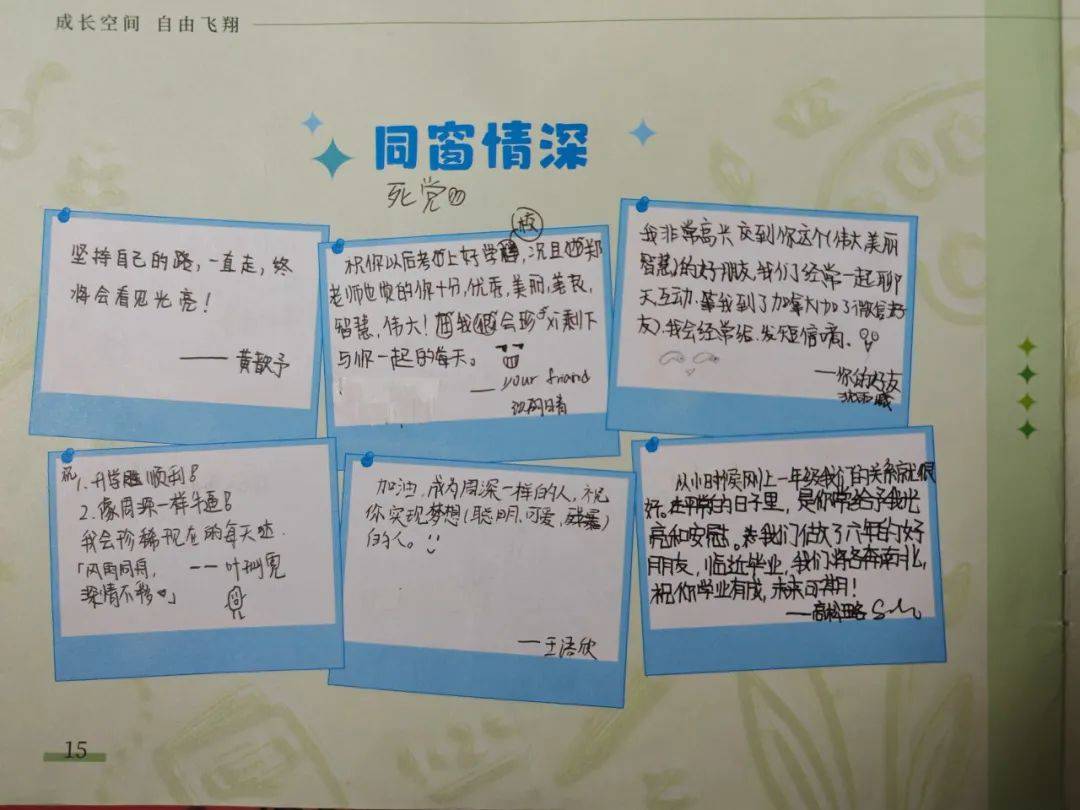 成长空间 自由飞翔
同窗情深
死党
坚持自己的路，一直走，终
将会看见光亮！
——黄歆予
校
祝你以后考上好学，况且郑
老师也说的你十分，优秀，美丽，善良，
智慧，伟大！我会珍xi剩下
与你一起的每天。
— your friend
我非常高兴交到你这个(伟大美丽
智慧)的好朋友，我们经常一起聊
天互动。等我到了加拿大加了微信好
友，我会经常给发短信嘀、
—你的好友
祝
1.升学顺利！
2.像周深一样牛逼！
我会珍稀现在的每天哒.
「风雨同舟，
深情不移」
加油，成为周深一样的人，祝
你实现梦想(聪明，可爱，)
的人。
—王语欣
从小时候网上一年级我们的关系就很
好。在平常的日子里，是你常给予我光
亮和安慰。我们做了六年的好
朋友，临近毕业，我们将各奔南北，
祝你学业有成，未来可期！
15